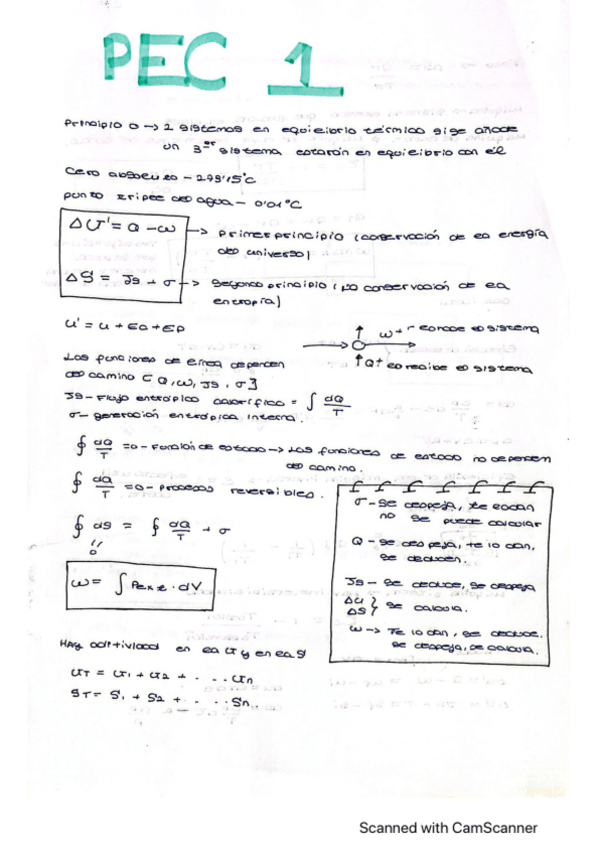 PEC 1
Principio 0 → 2 sistemas en equilibrio térmico si se añade
un 3er sistema estarán en equilibrio con él
Cero absoluto - 273'15°C
punto triple del agua - 0'01°C
ΔU' = Q - W → primer principio (conservación de la energía
del universo)
ΔS = Js + σ → segundo principio (no conservación de la
entropía)
U' = U + Ec + Ep
W+ cede el sistema
Q+ recibe el sistema
Las funciones de línea dependen
del camino [Q, W, Js, σ]
Js - Flujo entrópico calorífico = ∫ dQ/T
σ - generación entrópica interna.
∮ dQ/T = 0 - Función de estado → Las funciones de estado no dependen
del camino.
∮ dQ/T = 0 - Procesos reversibles.
∮ dS = ∮ dQ/T + σ
0
W = ∫ Pext · dV
σ - se despeja, te lo dan
no se puede calcular
Q - se despeja, te lo dan,
se deducen.
Js - se deduce, se despeja
ΔU
ΔS } se calcula.
W → Te lo dan, se deduce.
se despeja, se calcula.
Hay aditividad en la U y en la S
UT = U1 + U2 + . . . Un
ST = S1 + S2 + . . . Sn.
Scanned with CamScanner